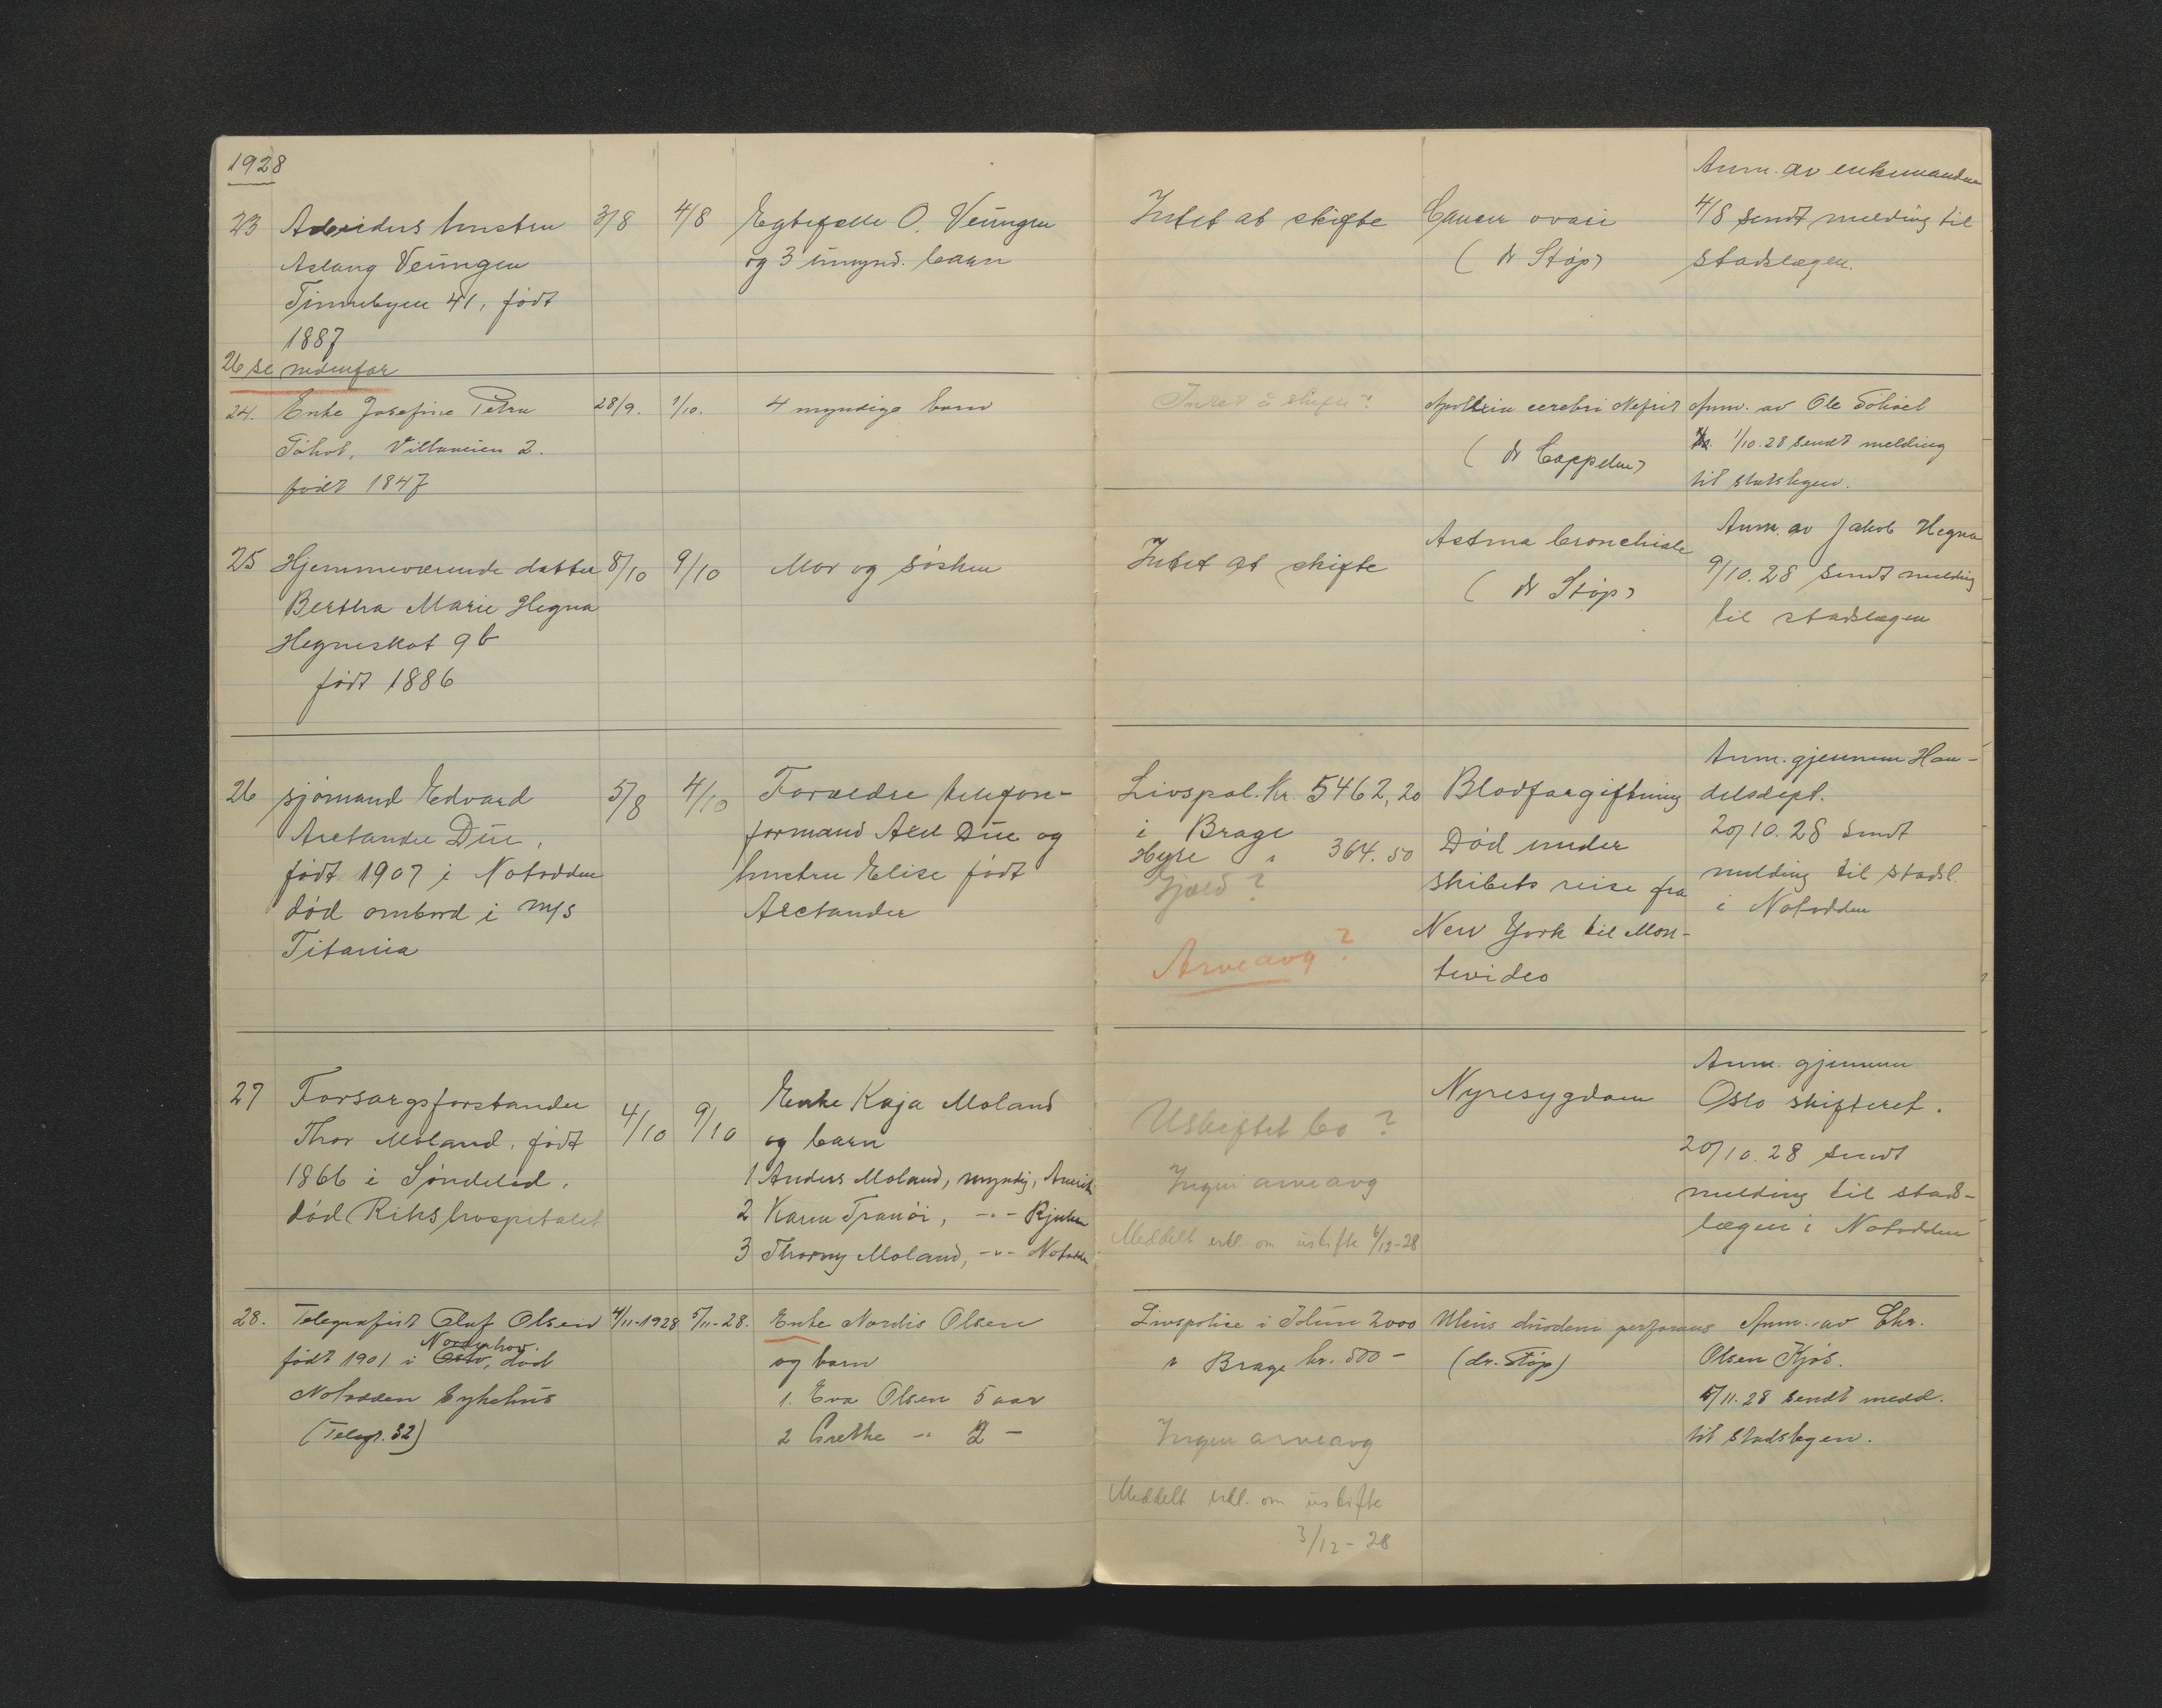 1928
23 Arbeiders hustru 3/8 4/8 Egtefælle O. Veungen
Aslaug Veungen og 3 umynd. barn
Tinnebyen 41, født
1887
26 se nedenfor
24. Enke Josefine Petra 28/9. 1/10. 4 myndige barn
Villaveien 2.
født 1847
25 Hjemmeværende datter 8/10 9/10 Mor og søsken
Bertha Marie Hegna
Hegneskot 9b
født 1886
26 sjømand Edvard 5/8 4/10 Forældre telefon-
Arctander Due, formand Axel Due og
født 1907 i Notodden hustru Elise født
død ombord i m/s Arctander
Titania
27 Forsorgsforstander 4/10 9/10 Enke Kaja Moland
Thor Moland, født og barn
1866 i Søndeled, 1 Anders Moland, myndig, Amerik
død Rikshospitalet 2 Karen Tranöi, -"- Rjukan
3 Thorny Moland, -"- Notodden
28. Telegrafist Olaf Olsen 4/11-1928 5/11-28. Enke Nordis Olsen
Norderhov.
født 1901 i Oslo, død og barn
Notodden Sykehus 1. Eva Olsen 5 aar
(Telegr. 32) 2 Grethe -" 2 -
Anm. av enkemanden
Intet at skifte Cancer ovarii 4/8 sendt melding til
(dr Støp) stadslægen.
Intet å skifte? Apoplexia cerebri Nefrit Anm. av Ole
(dr Cappelen) 1/10.28 sendt melding
til statslegen.
Astma bronchiale Anm. av Jakob Hegna
Intet at skifte 9/10.28 sendt melding
(dr Støp) til stadslægen
Anm. gjennem Han-
Livspol. Kr. 5462,20 Blodforgiftning delsdept.
i Brage 20/10.28 sendt
Hyre " 364.50 Død under melding til stadsl.
Gjæld? skibets reise fra i Notodden
New York til Mon-
Arveavg? tevideo
Anm. gjennem
Nyresygdom Oslo skifteret.
Uskiftet bo? 20/10.28 sendt
Ingen arveavg melding til stads-
Meddelt erkl. om uskifte 6/12-28 lægen i Notodden
Livspolise i Idun 2000 Ulcus duodeni perforans Anm. av Chr.
" Brage kr. 500 - (dr. Støp) Olsen Kjøs.
5/11.28 sendt medd.
Ingen arveavg til stadslegen.
Meddelt erkl. om uskifte
3/12-28